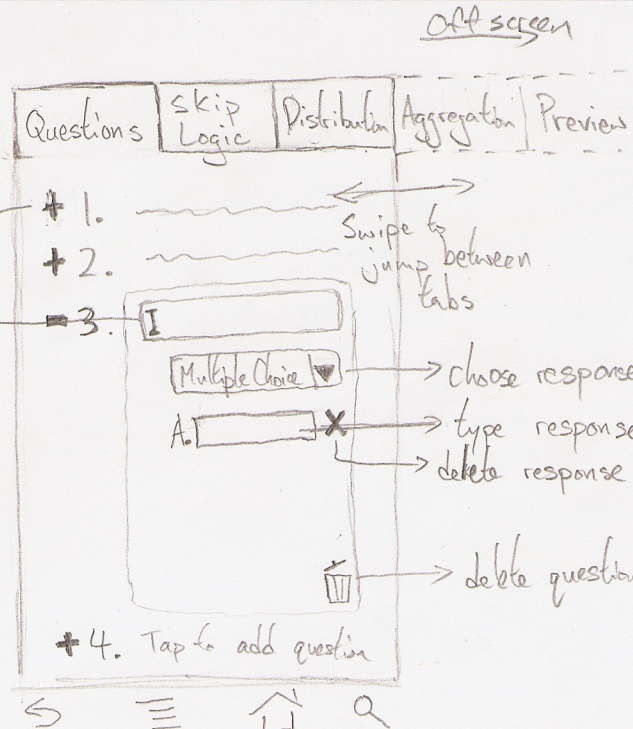 off screen
Questions
Skip
Logic
Distribution
Aggregation
Preview
+ 1.
Swipe to
jump between
tabs
+ 2.
- 3.
I
Multiple Choice
choose response
A.
X
type response
delete response
delete question
+ 4. Tap to add question